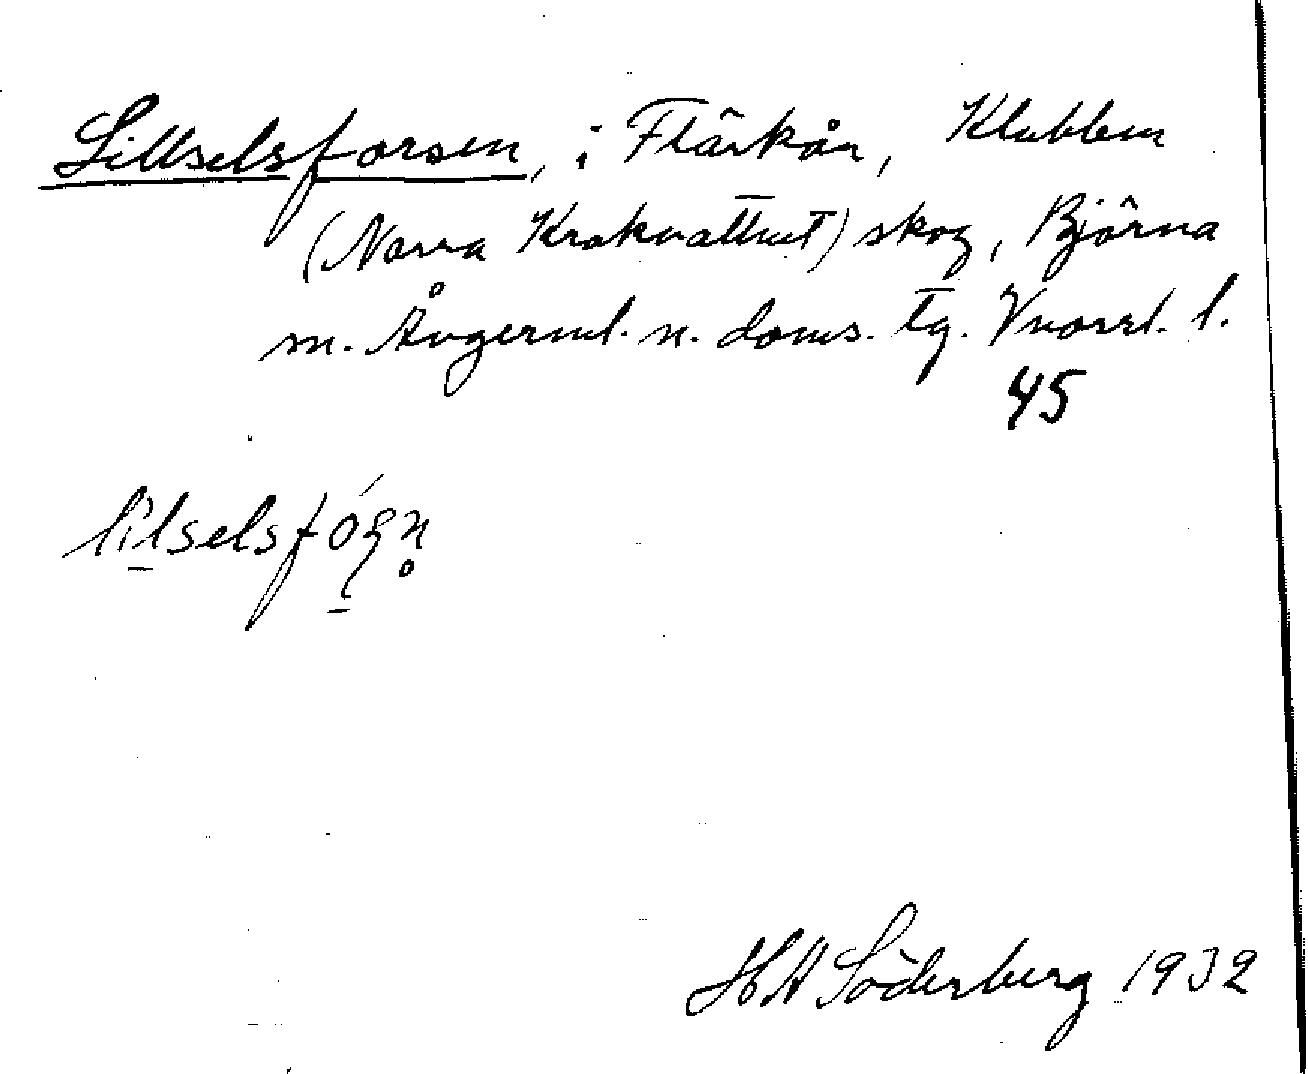 Lillselsforsen, i Flärkån, Klubben
(Norra Krokvattnet) skog, Björna
sn. Ångerml. n. doms. tg. Vnorrl. l.
45
lilselsfóʂn̥
HA Söderberg 1932